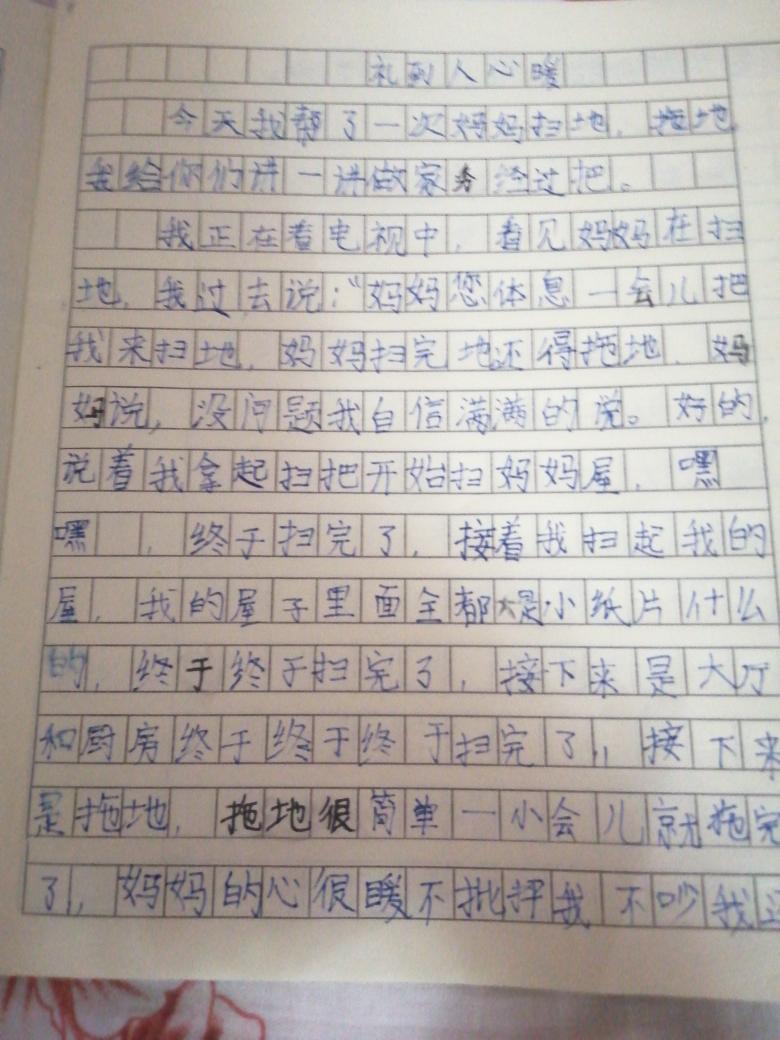 礼到人心暖
今天我帮了一次妈妈扫地，拖地
我给你们讲一讲做家务经过把。
我正在看电视中，看见妈妈在扫
地，我过去说：“妈妈您体息一会儿把
我来扫地，妈妈扫完地还得拖地，妈
妈说，没问题我自信满满的说。好的，
说着我拿起扫把开始扫妈妈屋，嘿
嘿，终于扫完了，接着我扫起我的
屋，我的屋子里面全都是小纸片什么
的，终于终于扫完了，接下来是大厅
和厨房终于终于终于扫完了，接下来
是拖地，拖地很简单一小会儿就拖完
了，妈妈的心很暖不批评我不吵我